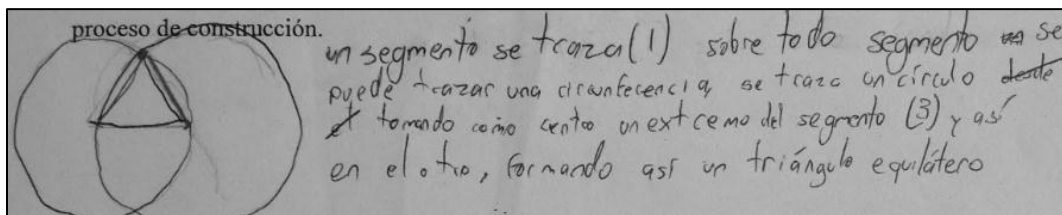 proceso de construcción.
un segmento se traza (1) sobre todo segmento se
puede trazar una circunferencia, se traza un círculo desde
el tomando como centro un extremo del segmento (3) y así
en el otro, formando así un triángulo equilátero